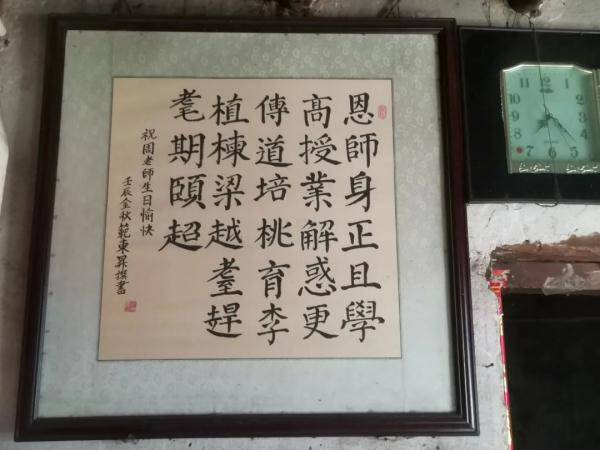 恩師身正且學
高授業解惑更
傳道培桃育李
植棟梁越耋趕
耄期頤超
祝周老師生日愉快
壬辰金秋範東昇撰書
12